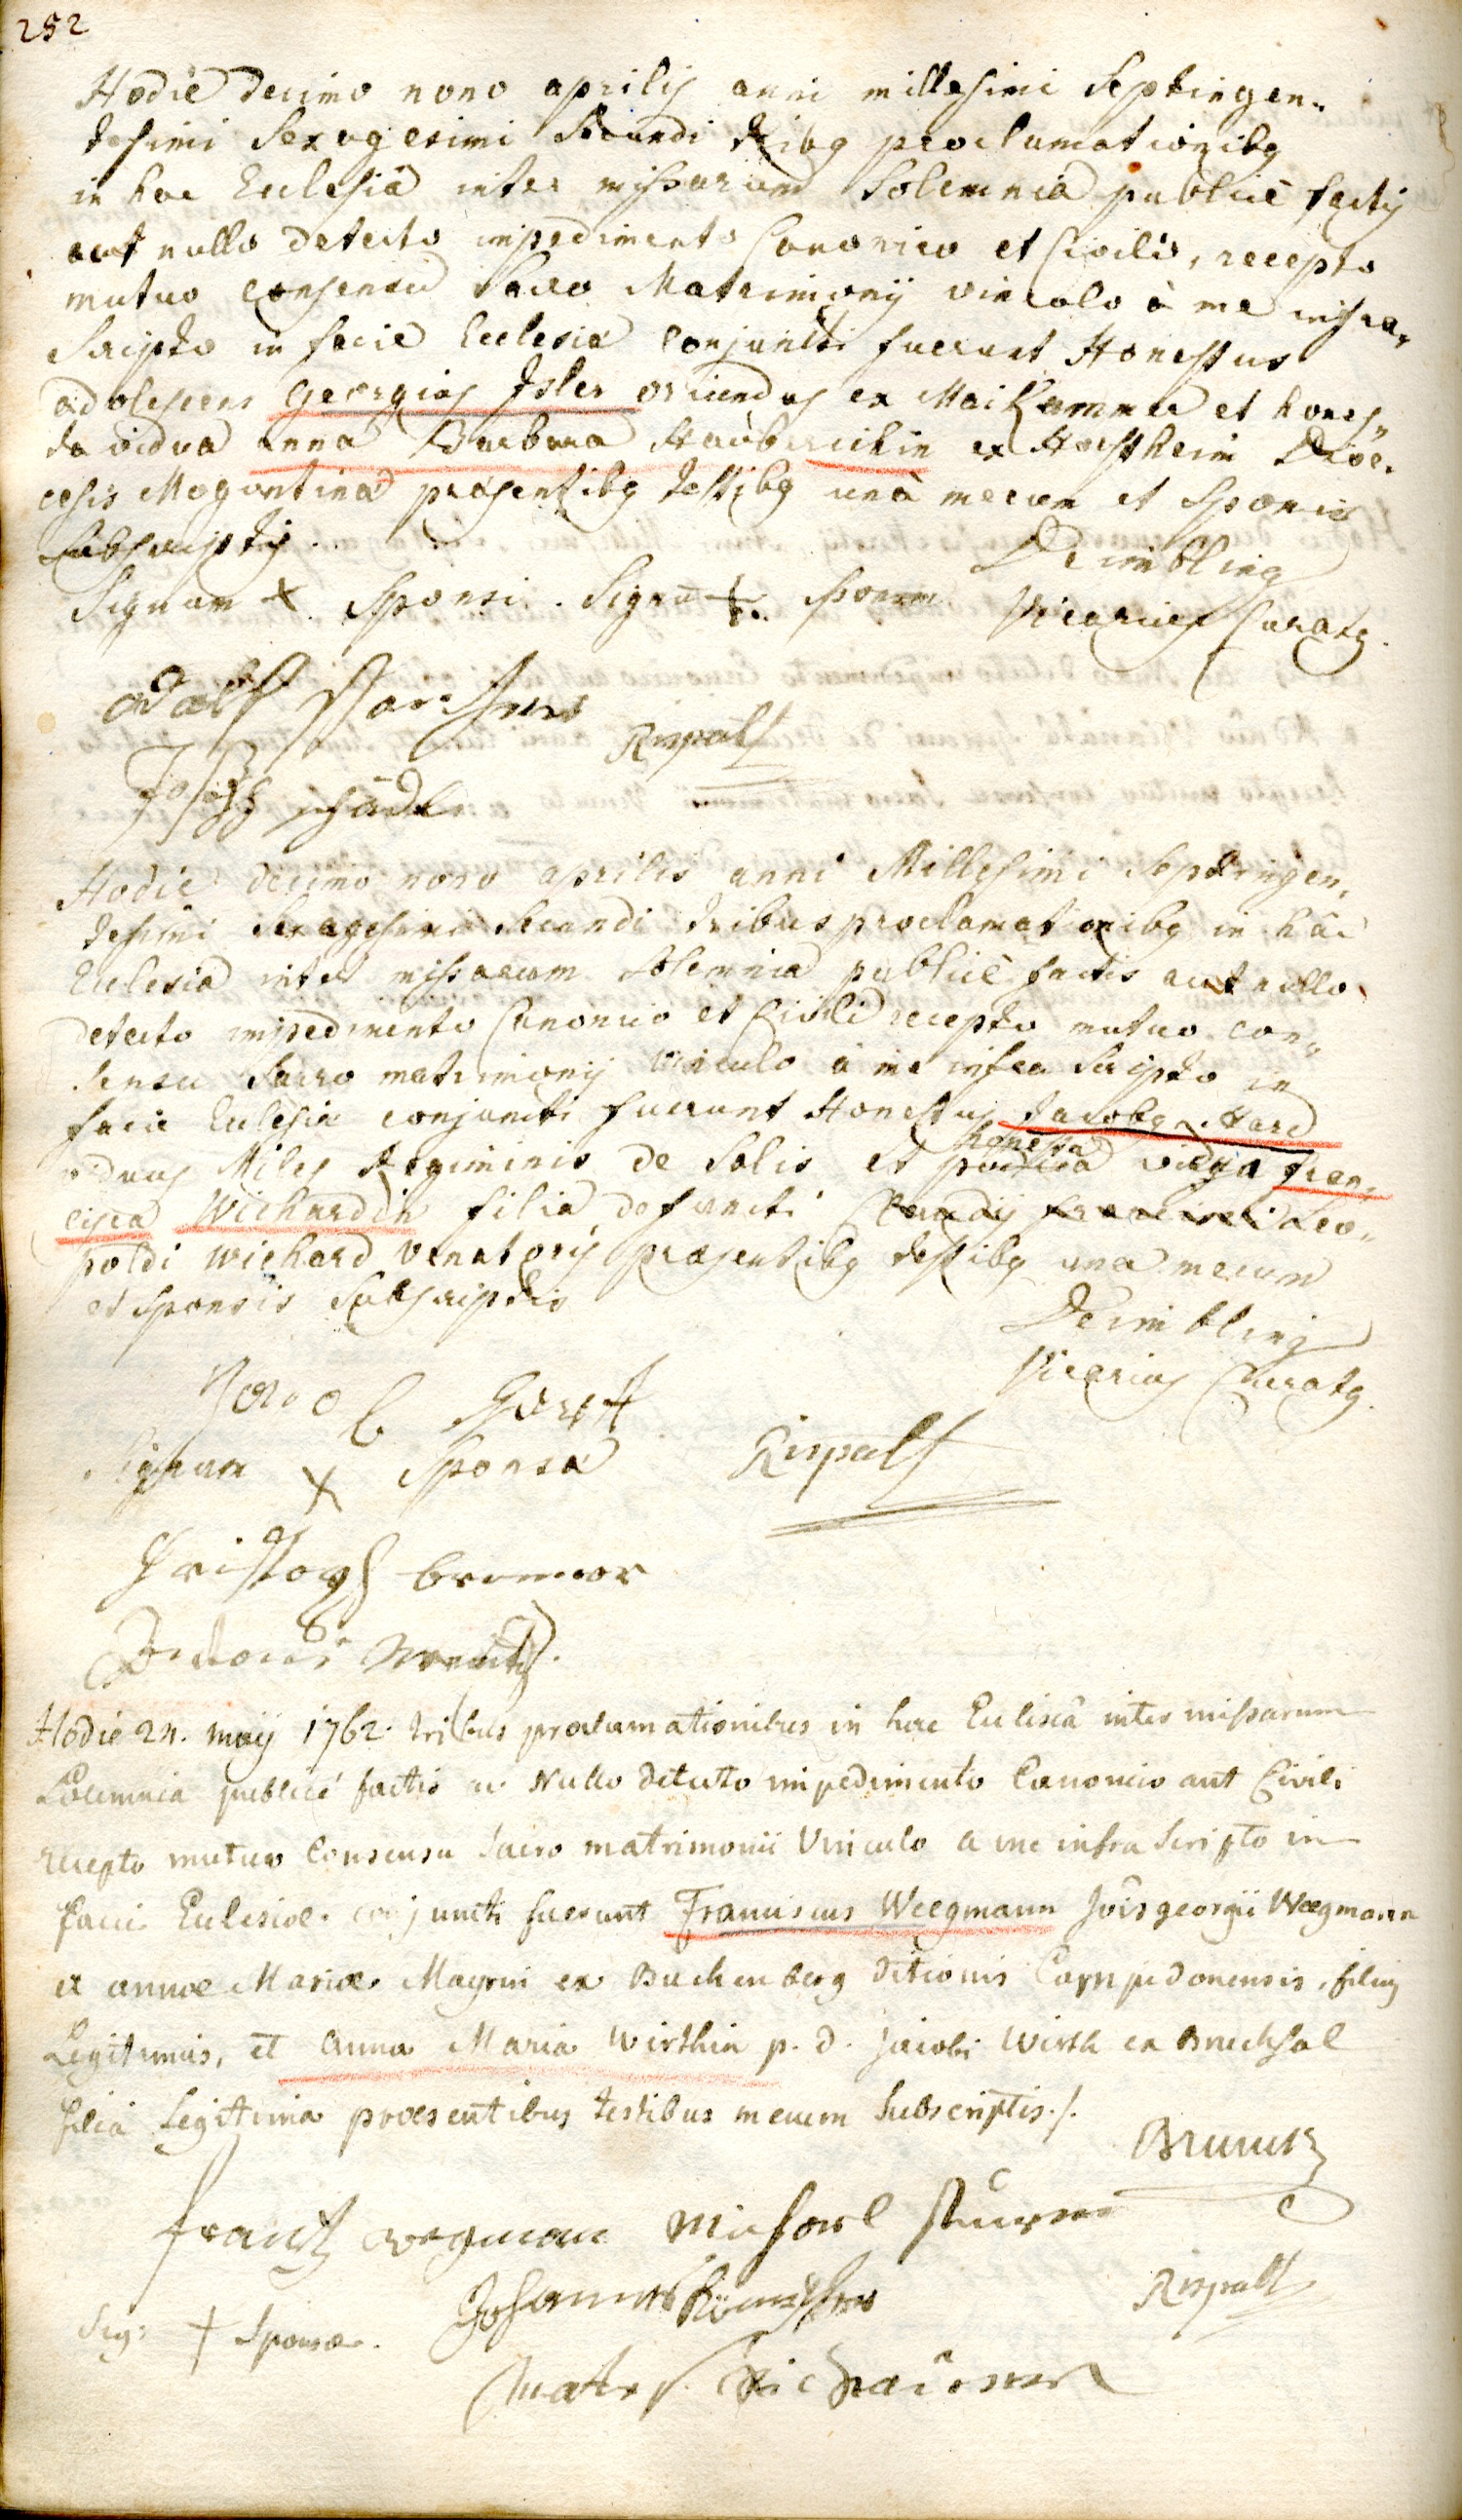 252
Hodie decimo nono aprilis anni millesimi Septingen-
tesimi Sexagesimi Secundi tribq proclamationibq
in hac Ecclesiâ inter missarum Solemnia publicè factis
aut nullo detecto impedimento Canonico et Civili, recepto
mutuo consensu Sacro Matrimonij vinculo à me infra-
Scripto in facie Ecclesiæ conjuncti fuerunt Honestus
adolescens Georgius Isler oriundus ex Maikammer et hones-
ta vidua anna Barbara ex Hochheim Dioe-
cesis Mogontinæ præsentibq testibq unà mecum et Sponsis
Subscriptis.
Signum + Sponsi. Signū + Sponsæ. Deimbling
Vicarius Curatq.
adolff
Rispalt
Joseph schädl
Hodie decimo nono aprilis anni Millesimi Septingen-
tesimi Sexagesimi Secundi tribus proclamationibq in hâc
Ecclesiâ inter missarum Solemnia publicè factis aut nullo
detecto impedimento Canonico et Civili recepto mutuo con-
sensu Sacro matrimonij vinculo à me infra Scripto in
facie Ecclesiæ conjuncti fuerunt Honestus Jacobq Hard
viduus Miles Regiminis de Solis et honesta vidua fran-
cisca Wichardin filia defuncti Leo-
poldi Wichard venatoris præsentibq testibq una mecum
et Sponsis Subscriptis
Deimbling
Vicarius Curatq.
Jacob
Signum + Sponsæ Rispalt
Christoph
Hodie 24. maij 1762. tribus proclamationibus in hac Ecclesiâ inter missarum
Solemnia publicè factis ac Nullo detecto impedimento Canonico aut Civili
recepto mutuo Consensu Sacro matrimonii Vinculo a me infra Scripto in
facie Ecclesiæ conjuncti fuerunt Franciscus Weegmann Jois georgii Weegmann
et annæ Mariæ Mayrin ex Buchenberg Ditionis Campidonensis, filius
Legitimus, et Anna Maria Wirthin p. d. Jacobi Wirth ex Bruchsal
filia Legitima præsentibus testibus mecum Subscriptis./.
frantz wegman Michael sturm
Johannes
Rispalt
Sig: + Sponsæ.